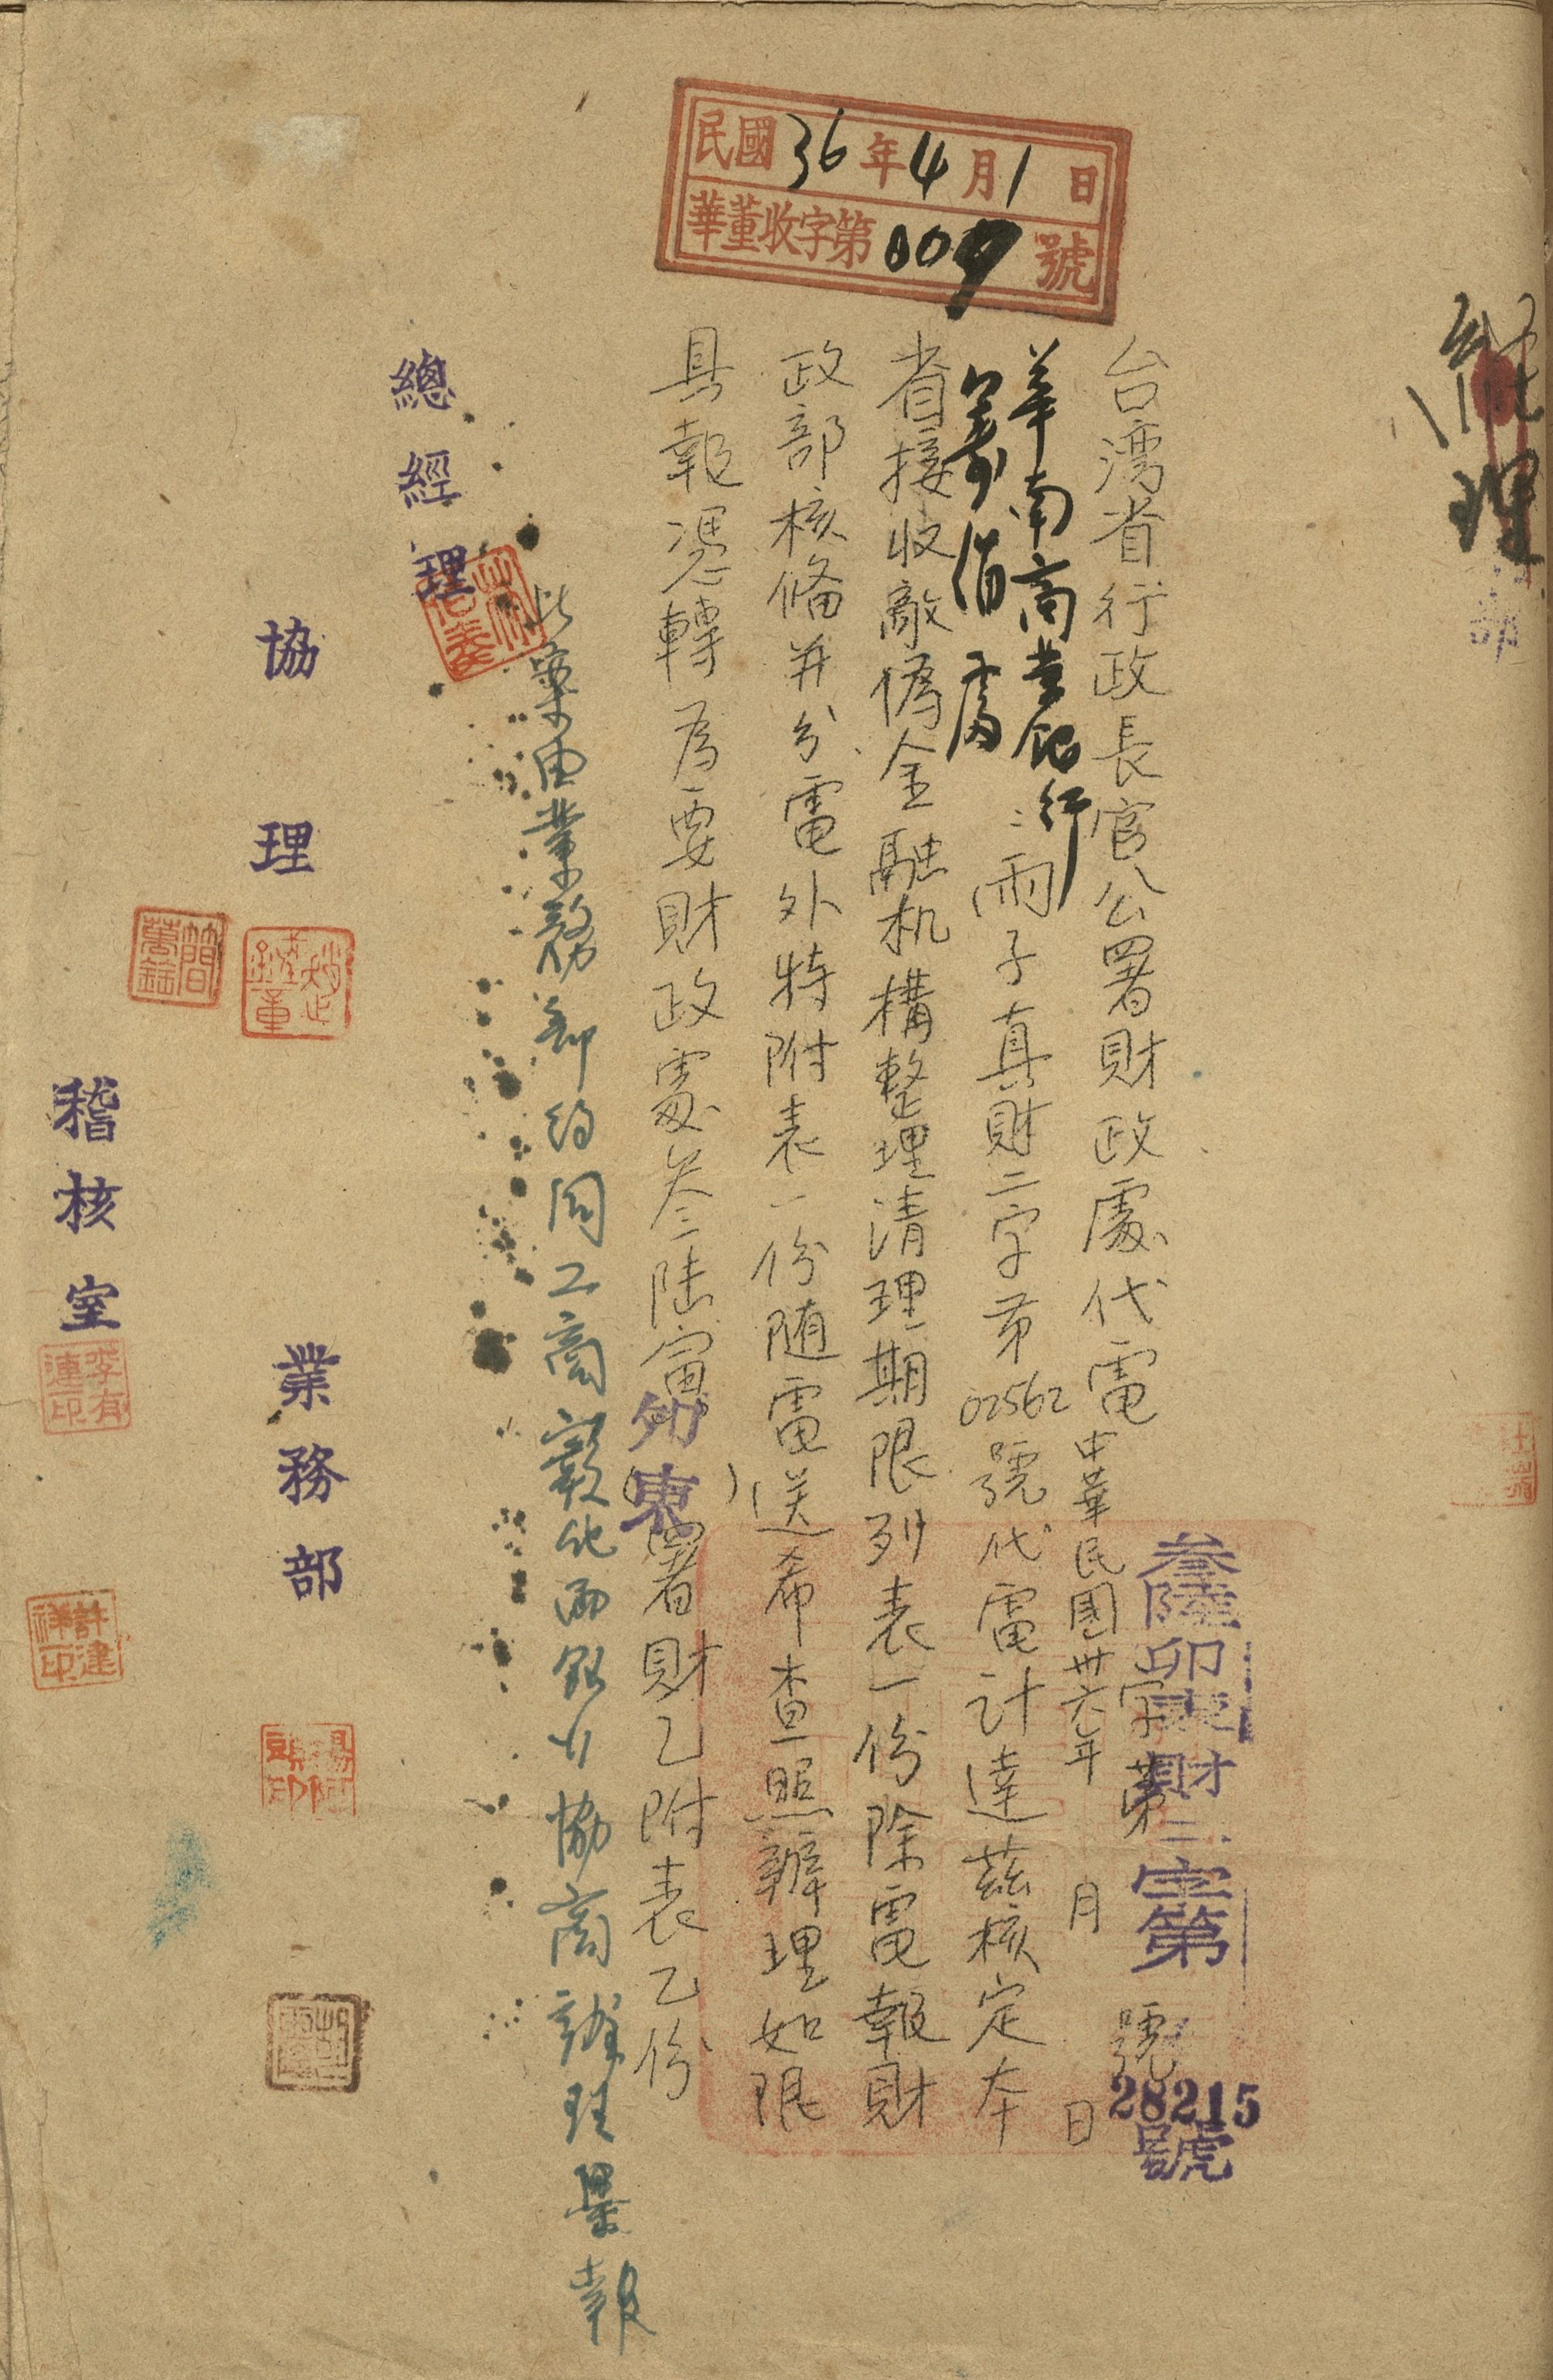 民國36年4月1日
華董收字第009號
經理
叁陸卯東財二字第28215號
字第 號
台湾省行政長官公署財政處代電
中華民國卅六年 月 日
華南商業銀行
籌備處
子真財二字第02562號代電計達茲核定本
省接收敵偽金融机構整理清理期限列表一份除電報財
政部核備并分電外特附表一份随電送希查照辦理如限
具報憑轉為要財政處叁陸寅卯東署財乙附表乙份
此案由業務部約同工商彰化兩銀行協商辦理具報
總經理
協理
業務部
稽核室
簡萬銓
李有連印
許建祥印